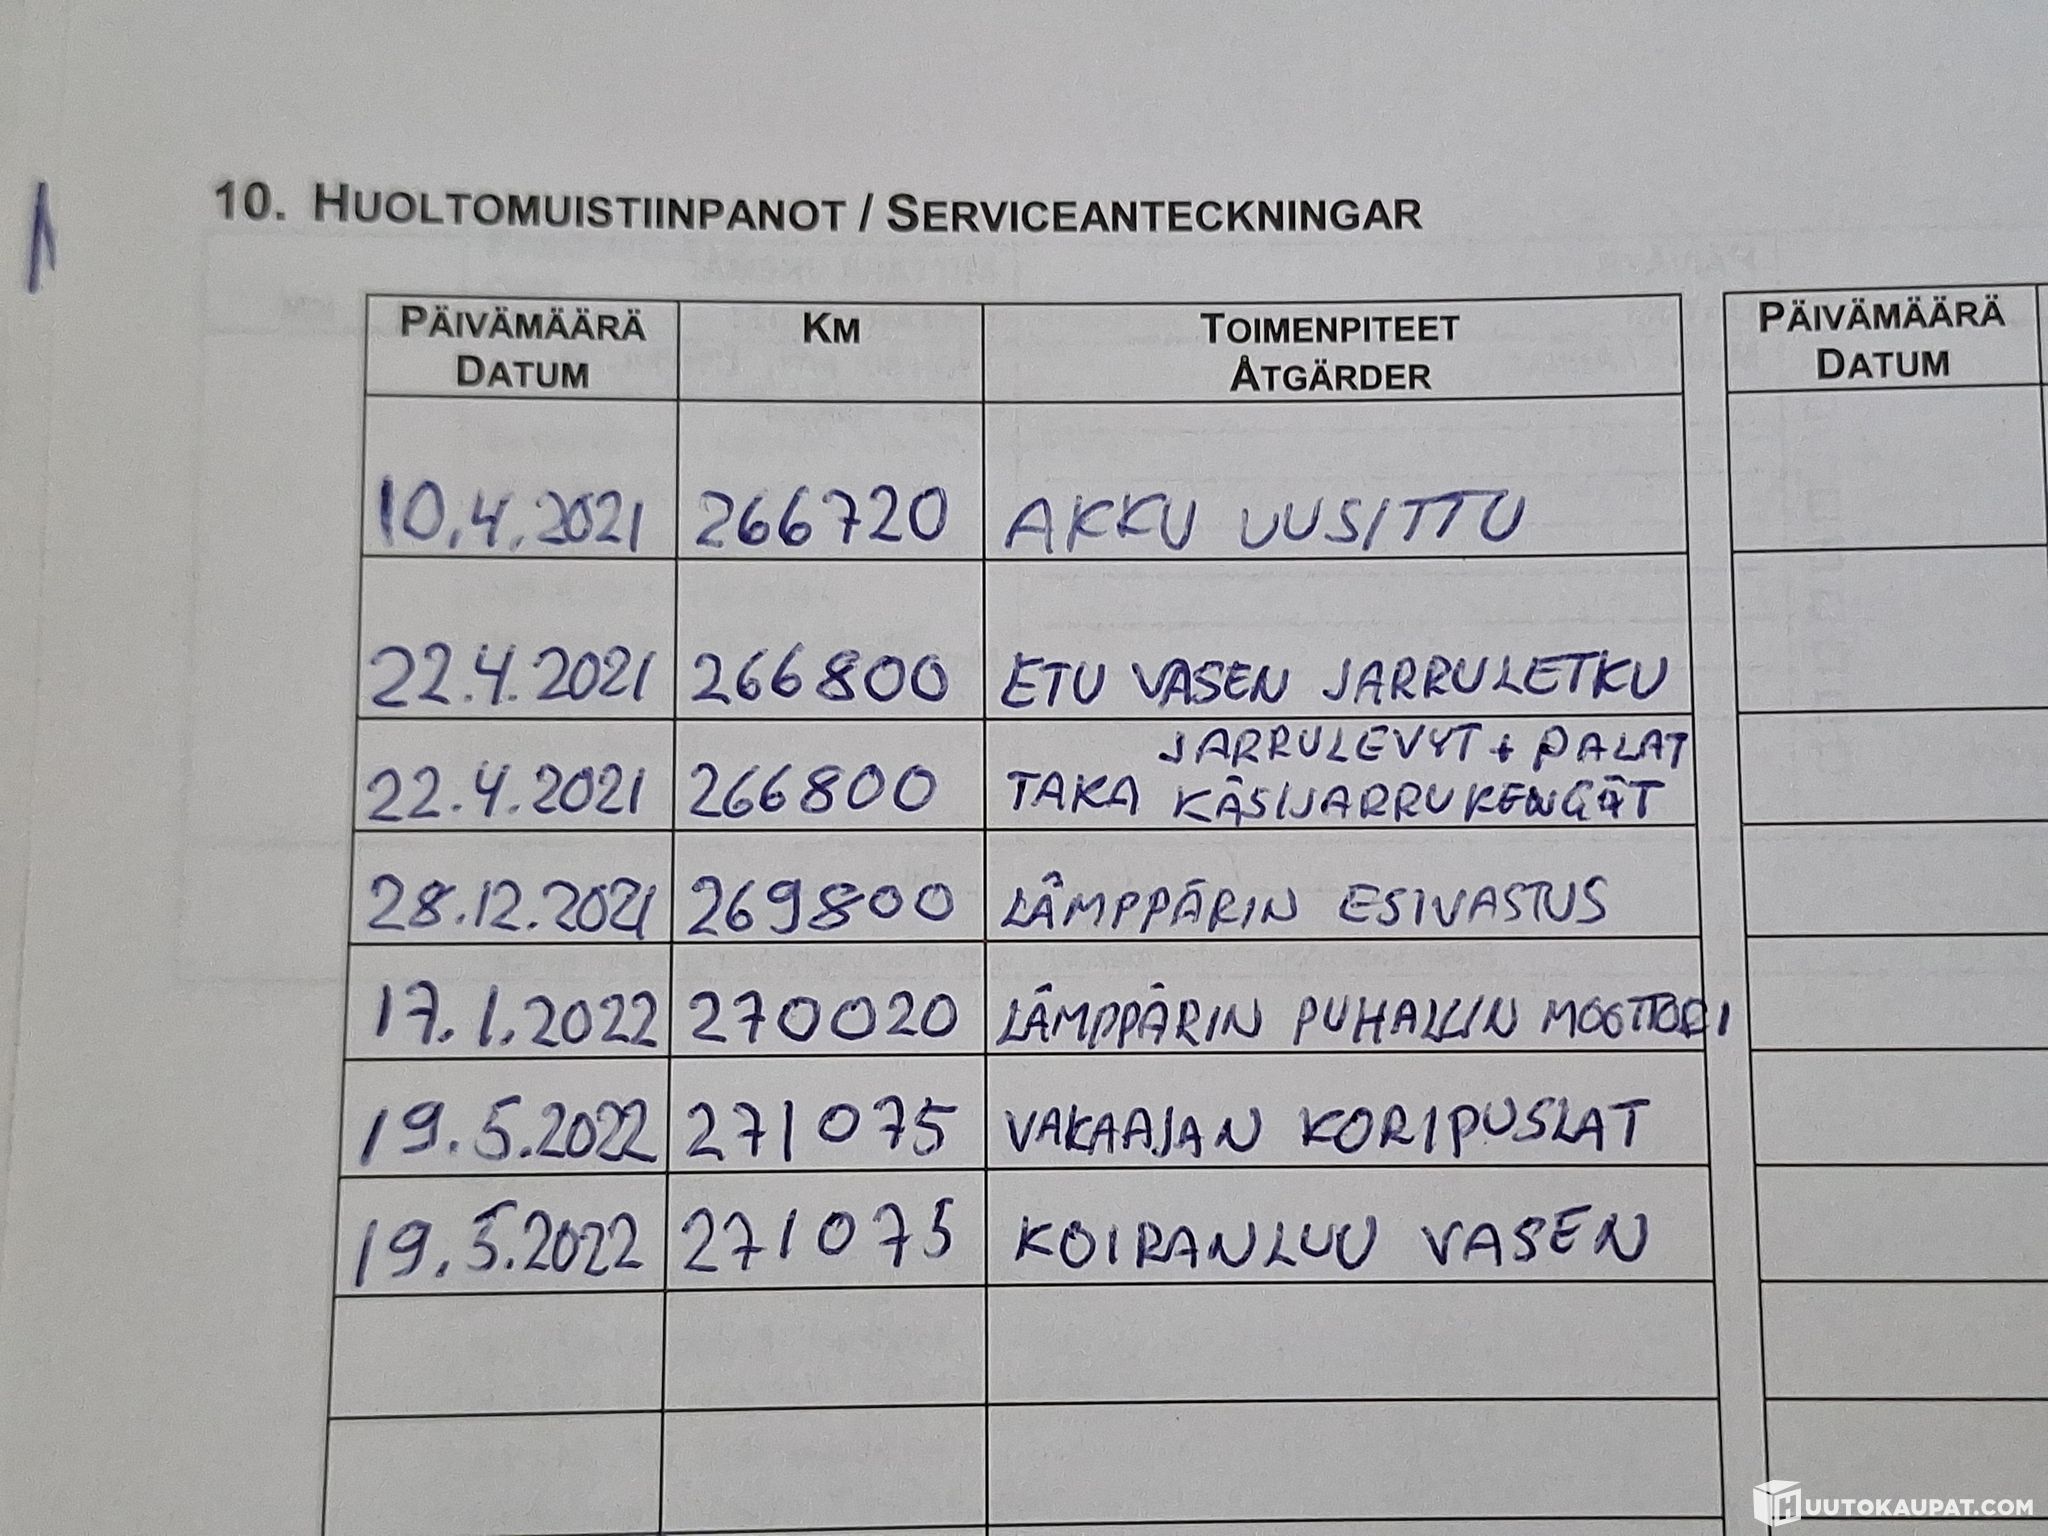 10. HUOLTOMUISTIINPANOT / SERVICEANTECKNINGAR
PÄIVÄMÄÄRÄ KM TOIMENPITEET PÄIVÄMÄÄRÄ
DATUM ÅTGÄRDER DATUM
10.4.2021 266720 AKKU UUSITTU
22.4.2021 266800 ETU VASEN JARRULETKU
JARRULEVYT + PALAT
22.4.2021 266800 TAKA KÄSIJARRUKENGÄT
28.12.2021 269800 LÄMPPÄRIN ESIVASTUS
17.1.2022 270020 LÄMPPÄRIN PUHALLIN MOOTTORI
19.5.2022 271075 VAKAAJAN KORIPUSLAT
19.5.2022 271075 KOIRANLUU VASEN
HUUTOKAUPAT.COM